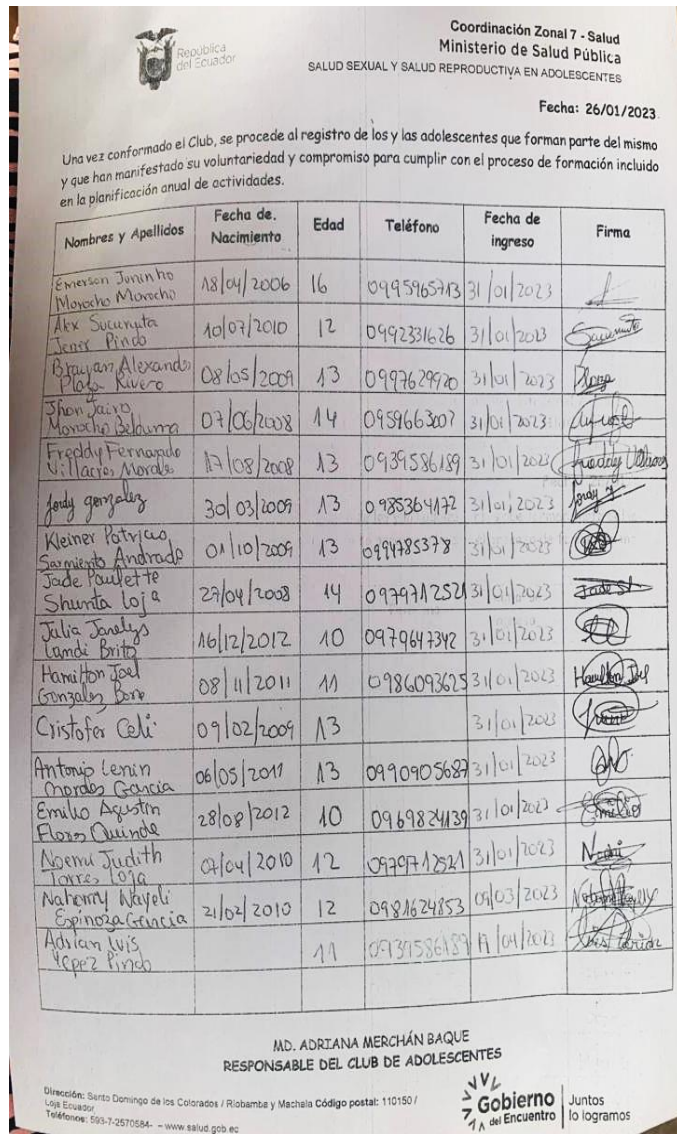 República
del Ecuador
Coordinación Zonal 7 - Salud
Ministerio de Salud Pública
SALUD SEXUAL Y SALUD REPRODUCTIVA EN ADOLESCENTES
Fecha: 26/01/2023
Una vez conformado el Club, se procede al registro de los y las adolescentes que forman parte del mismo
y que han manifestado su voluntariedad y compromiso para cumplir con el proceso de formación incluido
en la planificación anual de actividades.
Nombres y Apellidos Fecha de. Nacimiento Edad Teléfono Fecha de ingreso Firma
Emerson Juninho Morocho Morocho 18/04/2006 16 0995965713 31/01/2023
Alex Sucunuta Jenis Pindo 10/07/2010 12 0992331626 31/01/2023
Brayan Alexande Plaza Rivero 08/05/2009 13 0997629920 31/01/2023 Plaza
Jhon Jairo Morocho Belduma 07/06/2008 14 0959663007 31/01/2023
Freddy Fernando Villacres Morales 17/08/2008 13 0939586189 31/01/2023 Freddy
Jordy gonzalez 30/03/2009 13 0985364172 31/01/2023 Jordy
Kleiner Patricio Sarmiento Andrade 01/10/2009 13 0994785378 31/01/2023
Jade Paulette Shunta Loja 27/04/2008 14 0979712521 31/01/2023 Jade
Julia Janelys Landi Brito 16/12/2012 10 0979647342 31/01/2023
Hamilton Joel Gonzalez 08/11/2011 11 0986093625 31/01/2023 Hamilton
Cristofer Celi 09/02/2009 13 31/01/2023
Antonio Lenin Garcia 06/05/2011 13 0990905687 31/01/2023
Emilio Agustin Flores Quinde 28/08/2012 10 0969824139 31/01/2023 Emilio
Noemi Judith Torres Loja 07/04/2010 12 0979712521 31/01/2023
Nahomy Nayeli Espinoza Garcia 21/02/2010 12 0981624853 09/03/2023
Adrian Luis Yepez Pindo 11 0939586189 17/04/2023
MD. ADRIANA MERCHÁN BAQUE
RESPONSABLE DEL CLUB DE ADOLESCENTES
Dirección: Santo Domingo de los Colorados / Riobamba y Machala Código postal: 110150 /
Loja Ecuador
Teléfonos: 593-7-2570584- - www.salud.gob.ec
Gobierno
del Encuentro
Juntos
lo logramos